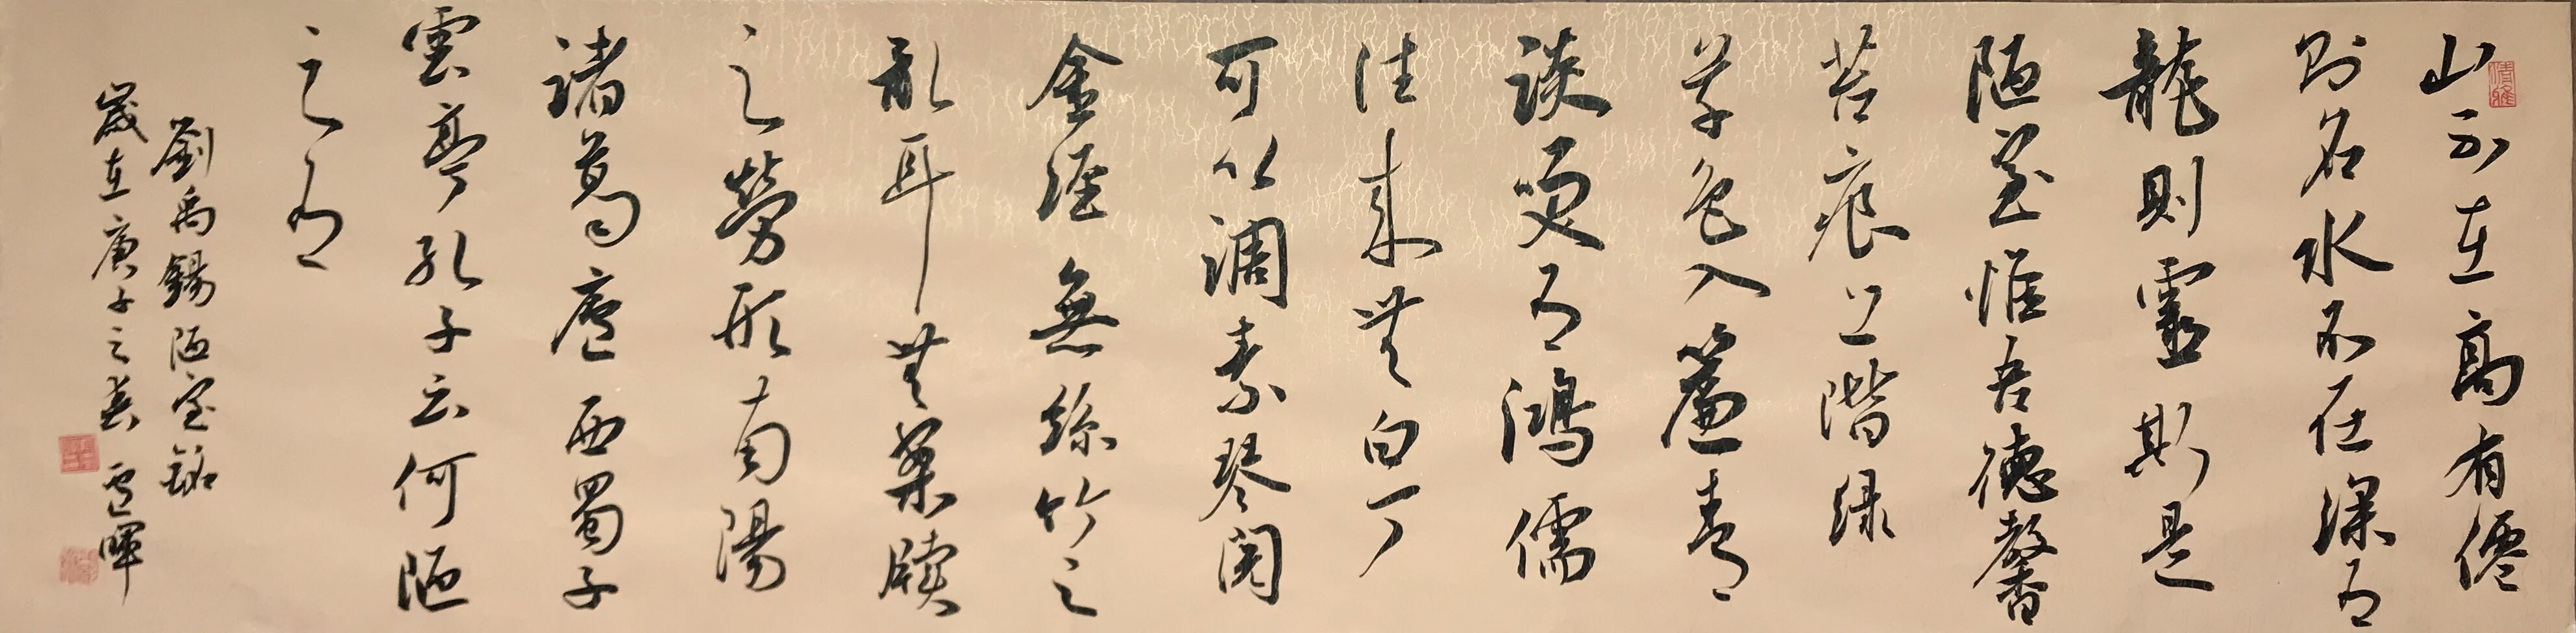 清雅
山不在高有僊
則名水不在深有
龍則靈斯是
陋室惟吾德馨
苔痕上階緑
草色入簾青
談笑有鴻儒
往來無白丁
可以調素琴閱
金經無絲竹之
亂耳無案牘
之勞形南陽
諸葛廬西蜀子
雲亭孔子云何陋
之有
劉禹錫陋室銘
歲在庚子之春 暉